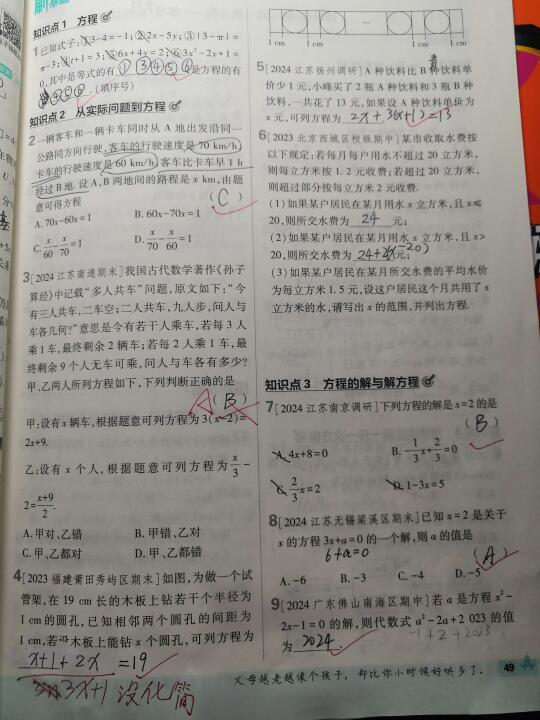 刷基础
知识点1 方程
1 已知式子:①3-4=-1;②2x-5y;③|3-π|=
π-3;④y+1=3;⑤6x+4y=2;⑥3x²-2x+1=
0,其中是等式的有①③④⑤⑥,是方程的有
④⑤⑥.(填序号)
知识点2 从实际问题到方程
2 一辆客车和一辆卡车同时从A地出发沿同一
公路同方向行驶,客车的行驶速度是70 km/h,
卡车的行驶速度是60 km/h,客车比卡车早1 h
经过B地.设A,B两地间的路程是x km,由题
意可得方程 (C)
A. 70x-60x=1 B. 60x-70x=1
C. x/60-x/70=1 D. x/70-x/60=1
3 [2024江苏南通期末]我国古代数学著作《孙子
算经》中记载“多人共车”问题,原文如下:“今
有三人共车,二车空;二人共车,九人步,问人与
车各几何?”意思是今有若干人乘车,若每3人
乘1车,最终剩余2辆车;若每2人乘1车,最
终剩余9个人无车可乘,问人与车各有多少?
甲、乙两人所列方程如下,下列判断正确的是
A (B)
甲:设有x辆车,根据题意可列方程为3(x-2)=
2x+9.
乙:设有x个人,根据题意可列方程为x/3-
2=(x+9)/2.
A. 甲对、乙错 B. 甲错、乙对
C. 甲、乙都对 D. 甲、乙都错
4 [2023福建莆田秀屿区期末]如图,为做一个试
管架,在19 cm长的木板上钻若干个半径为
1 cm的圆孔,已知相邻两个圆孔的间距为
1 cm,若设木板上能钻x个圆孔,可列方程为
x+1+2x=19
3x+1 没化简
1 cm 1 cm 1 cm 1 cm
5 [2024江苏扬州调研]A种饮料比B种饮料单
价少1元,小峰买了2瓶A种饮料和3瓶B种
饮料,一共花了13元,如果设A种饮料单价为
x元,可列方程为2x+3(x+1)=13
6 [2023北京西城区校级期中]某市收取水费按
以下规定:若每月每户用水不超过20立方米,
则每立方米按1.2元收费;若超过20立方米,
则超过部分按每立方米2元收费.
(1)如果某户居民在某月用水x立方米,且x≤
20,则所交水费为24元;
(2)如果某户居民在某月用水x立方米,且x>
20,则所交水费为24+2(x-20)元;
(3)如果某户居民在某月所交水费的平均水价
为每立方米1.5元,设这户居民这个月共用了x
立方米的水,请写出x的范围,并列出方程.
知识点3 方程的解与解方程
7 [2024江苏南京调研]下列方程的解是x=2的是
(B)
A. 4x+8=0 B. -1/3x+2/3=0
C. 2/3x=2 D. 1-3x=5
8 [2024江苏无锡梁溪区期末]已知x=2是关于
x的方程3x+a=0的一个解,则a的值是
6+a=0 (A)
A. -6 B. -3 C. -4 D. -5
9 [2024广东佛山南海区期中]若a是方程x²-
2x-1=0的解,则代数式a²-2a+2 023的值
为2024.
-1+2+2023
父母越老越像个孩子,却比你小时候好哄多了。
49